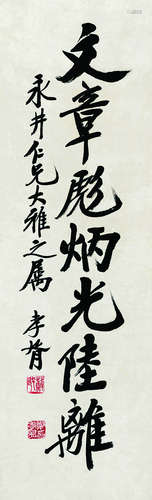 文章彪炳光陸離
永井仁兄大雅之屬 孝胥